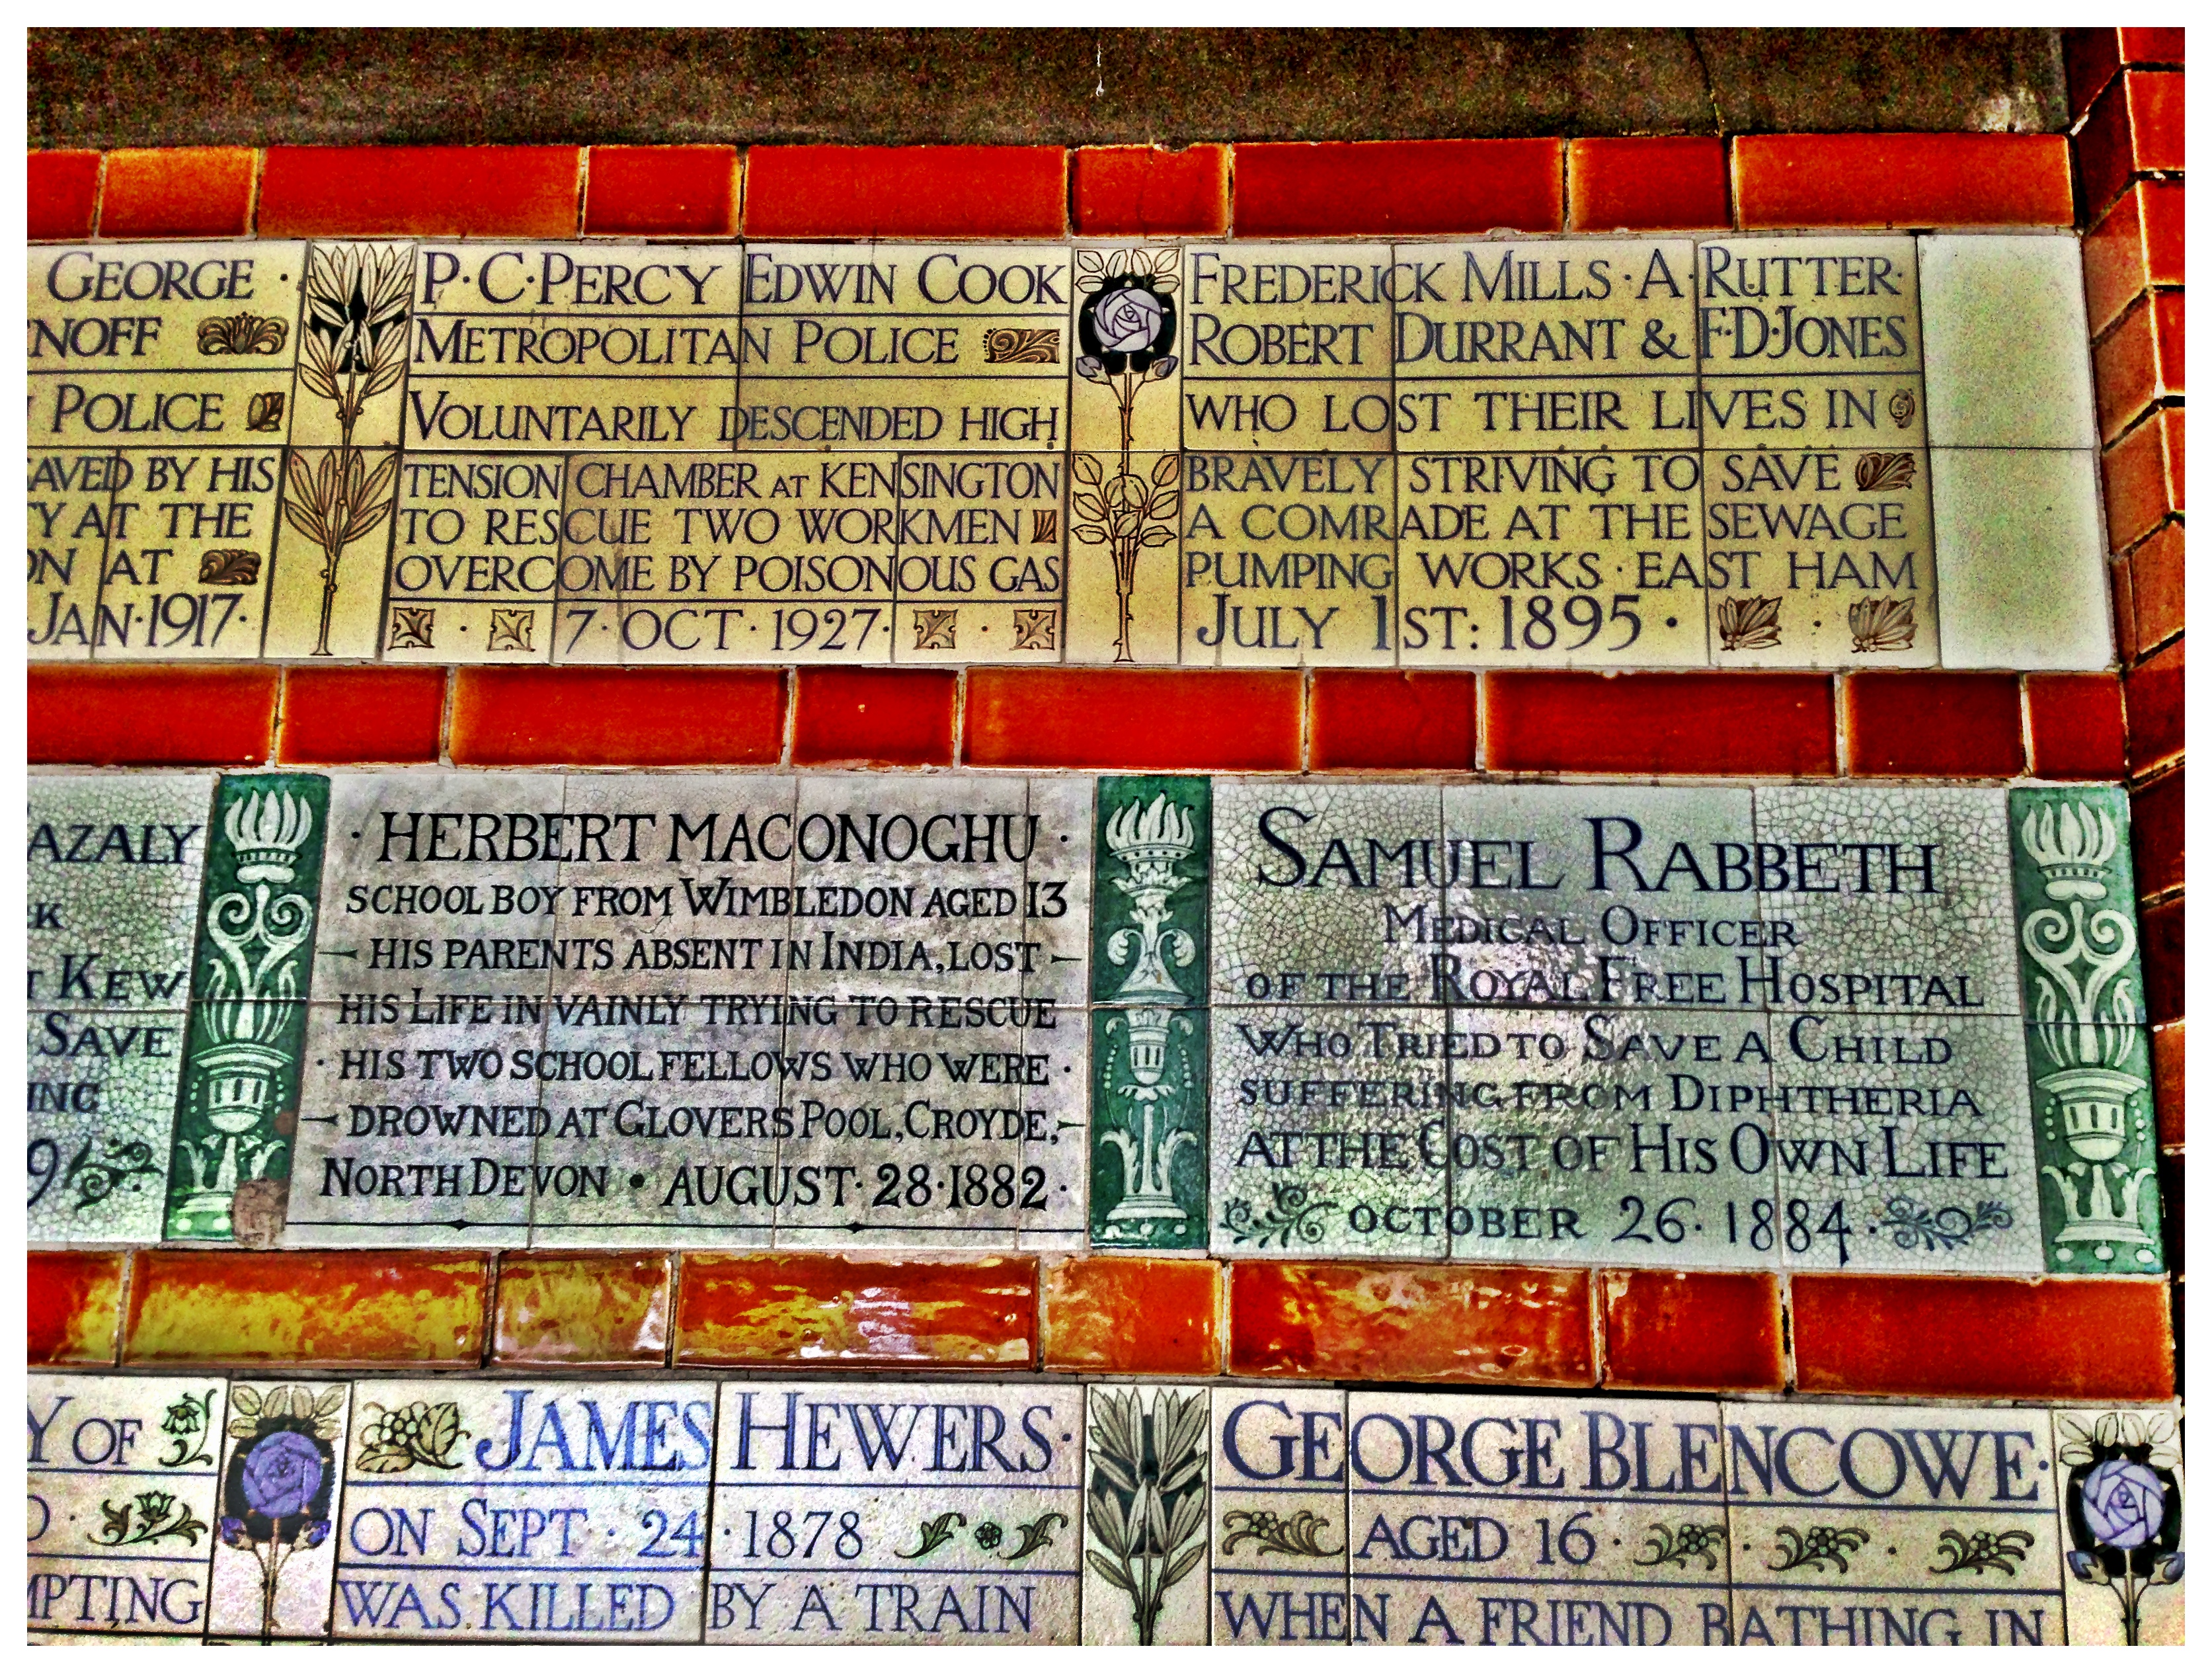 GEORGE ·
NOFF
POLICE
AVED BY HIS
Y AT THE
ON AT
JAN·1917·
P·C·PERCY EDWIN COOK
METROPOLITAN POLICE
VOLUNTARILY DESCENDED HIGH
TENSION CHAMBER AT KENSINGTON
TO RESCUE TWO WORKMEN
OVERCOME BY POISONOUS GAS
· 7·OCT·1927· ·
FREDERICK MILLS·A·RUTTER·
ROBERT DURRANT & F·D·JONES
WHO LOST THEIR LIVES IN
BRAVELY STRIVING TO SAVE
A COMRADE AT THE SEWAGE
PUMPING WORKS·EAST HAM
JULY 1ST: 1895· ·
AZALY
K
T KEW
SAVE
ING
9
· HERBERT MACONOGHU ·
SCHOOL BOY FROM WIMBLEDON AGED 13
HIS PARENTS ABSENT IN INDIA, LOST
HIS LIFE IN VAINLY TRYING TO RESCUE
· HIS TWO SCHOOL FELLOWS WHO WERE ·
DROWNED AT GLOVERS POOL, CROYDE,
NORTH DEVON • AUGUST·28·1882·
SAMUEL RABBETH
MEDICAL OFFICER
OF THE ROYAL FREE HOSPITAL
WHO TRIED TO SAVE A CHILD
SUFFERING FROM DIPHTHERIA
AT THE COST OF HIS OWN LIFE
OCTOBER 26·1884·
Y OF
D·
MPTING
JAMES HEWERS·
ON SEPT·24·1878
WAS KILLED BY A TRAIN
GEORGE BLENCOWE·
AGED 16· · ·
WHEN A FRIEND BATHING IN